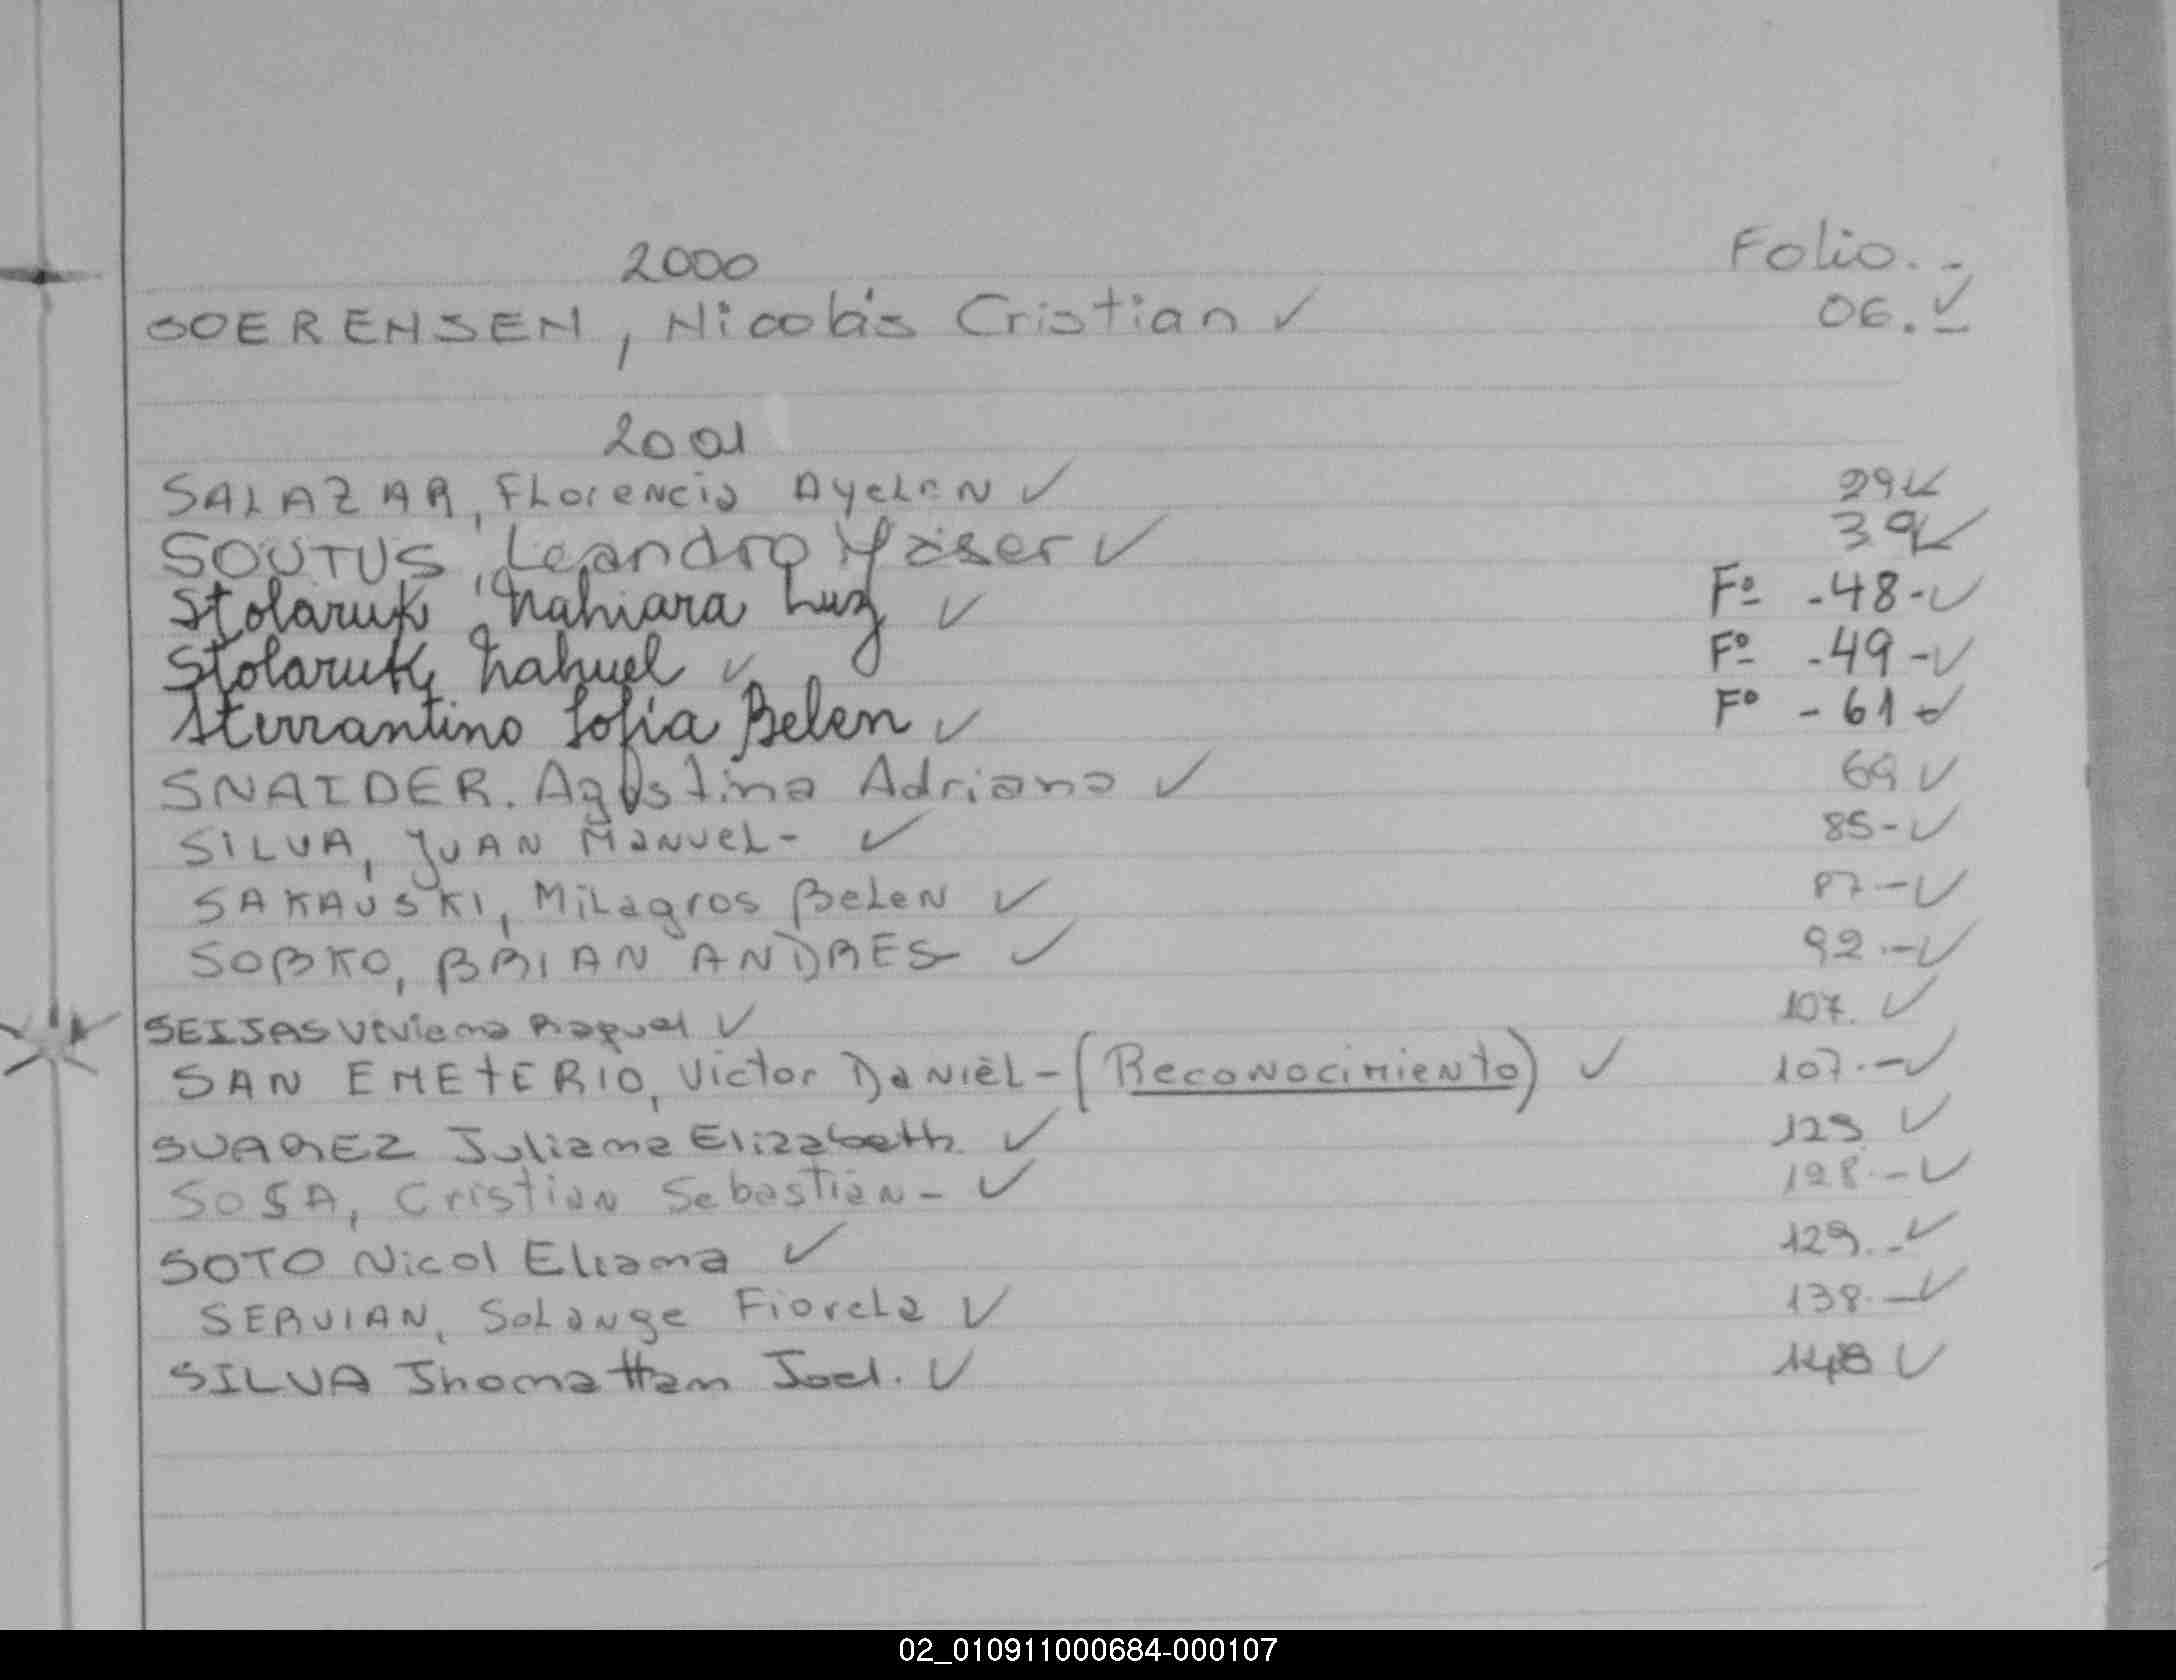 2000 Folio.-
SOERENSEN, Nicolás Cristian ✓ 06. ✓
2001
SALAZAR, Florencia Ayelen ✓ 29 ✓
SOUTUS, Leandro Yaser ✓ 39 ✓
Stolaruk, Nahiara Luz ✓ Fº -48- ✓
Stolaruk, Nahuel ✓ Fº -49- ✓
Sterrantino Sofia Belen ✓ Fº -61- ✓
SNAIDER. Agustina Adriana ✓ 69 ✓
SILVA, JUAN MANUEL- ✓ 85- ✓
SAKAUSKI, Milagros Belen ✓ 87- ✓
SOBKO, BRIAN ANDRES ✓ 92.- ✓
SEIJAS Viviana Raquel ✓ 107. ✓
SAN EMETERIO, Victor Daniel-(Reconocimiento) ✓ 107.- ✓
SUAREZ Juliana Elizabeth. ✓ ✓
SOSA, Cristian Sebastian- ✓ 128.- ✓
SOTO Nicol Eliana ✓ 129.- ✓
SERVIAN, Solange Fiorela ✓ 138.- ✓
SILVA Jhonatham Joel. ✓ 148 ✓
02_010911000684-000107